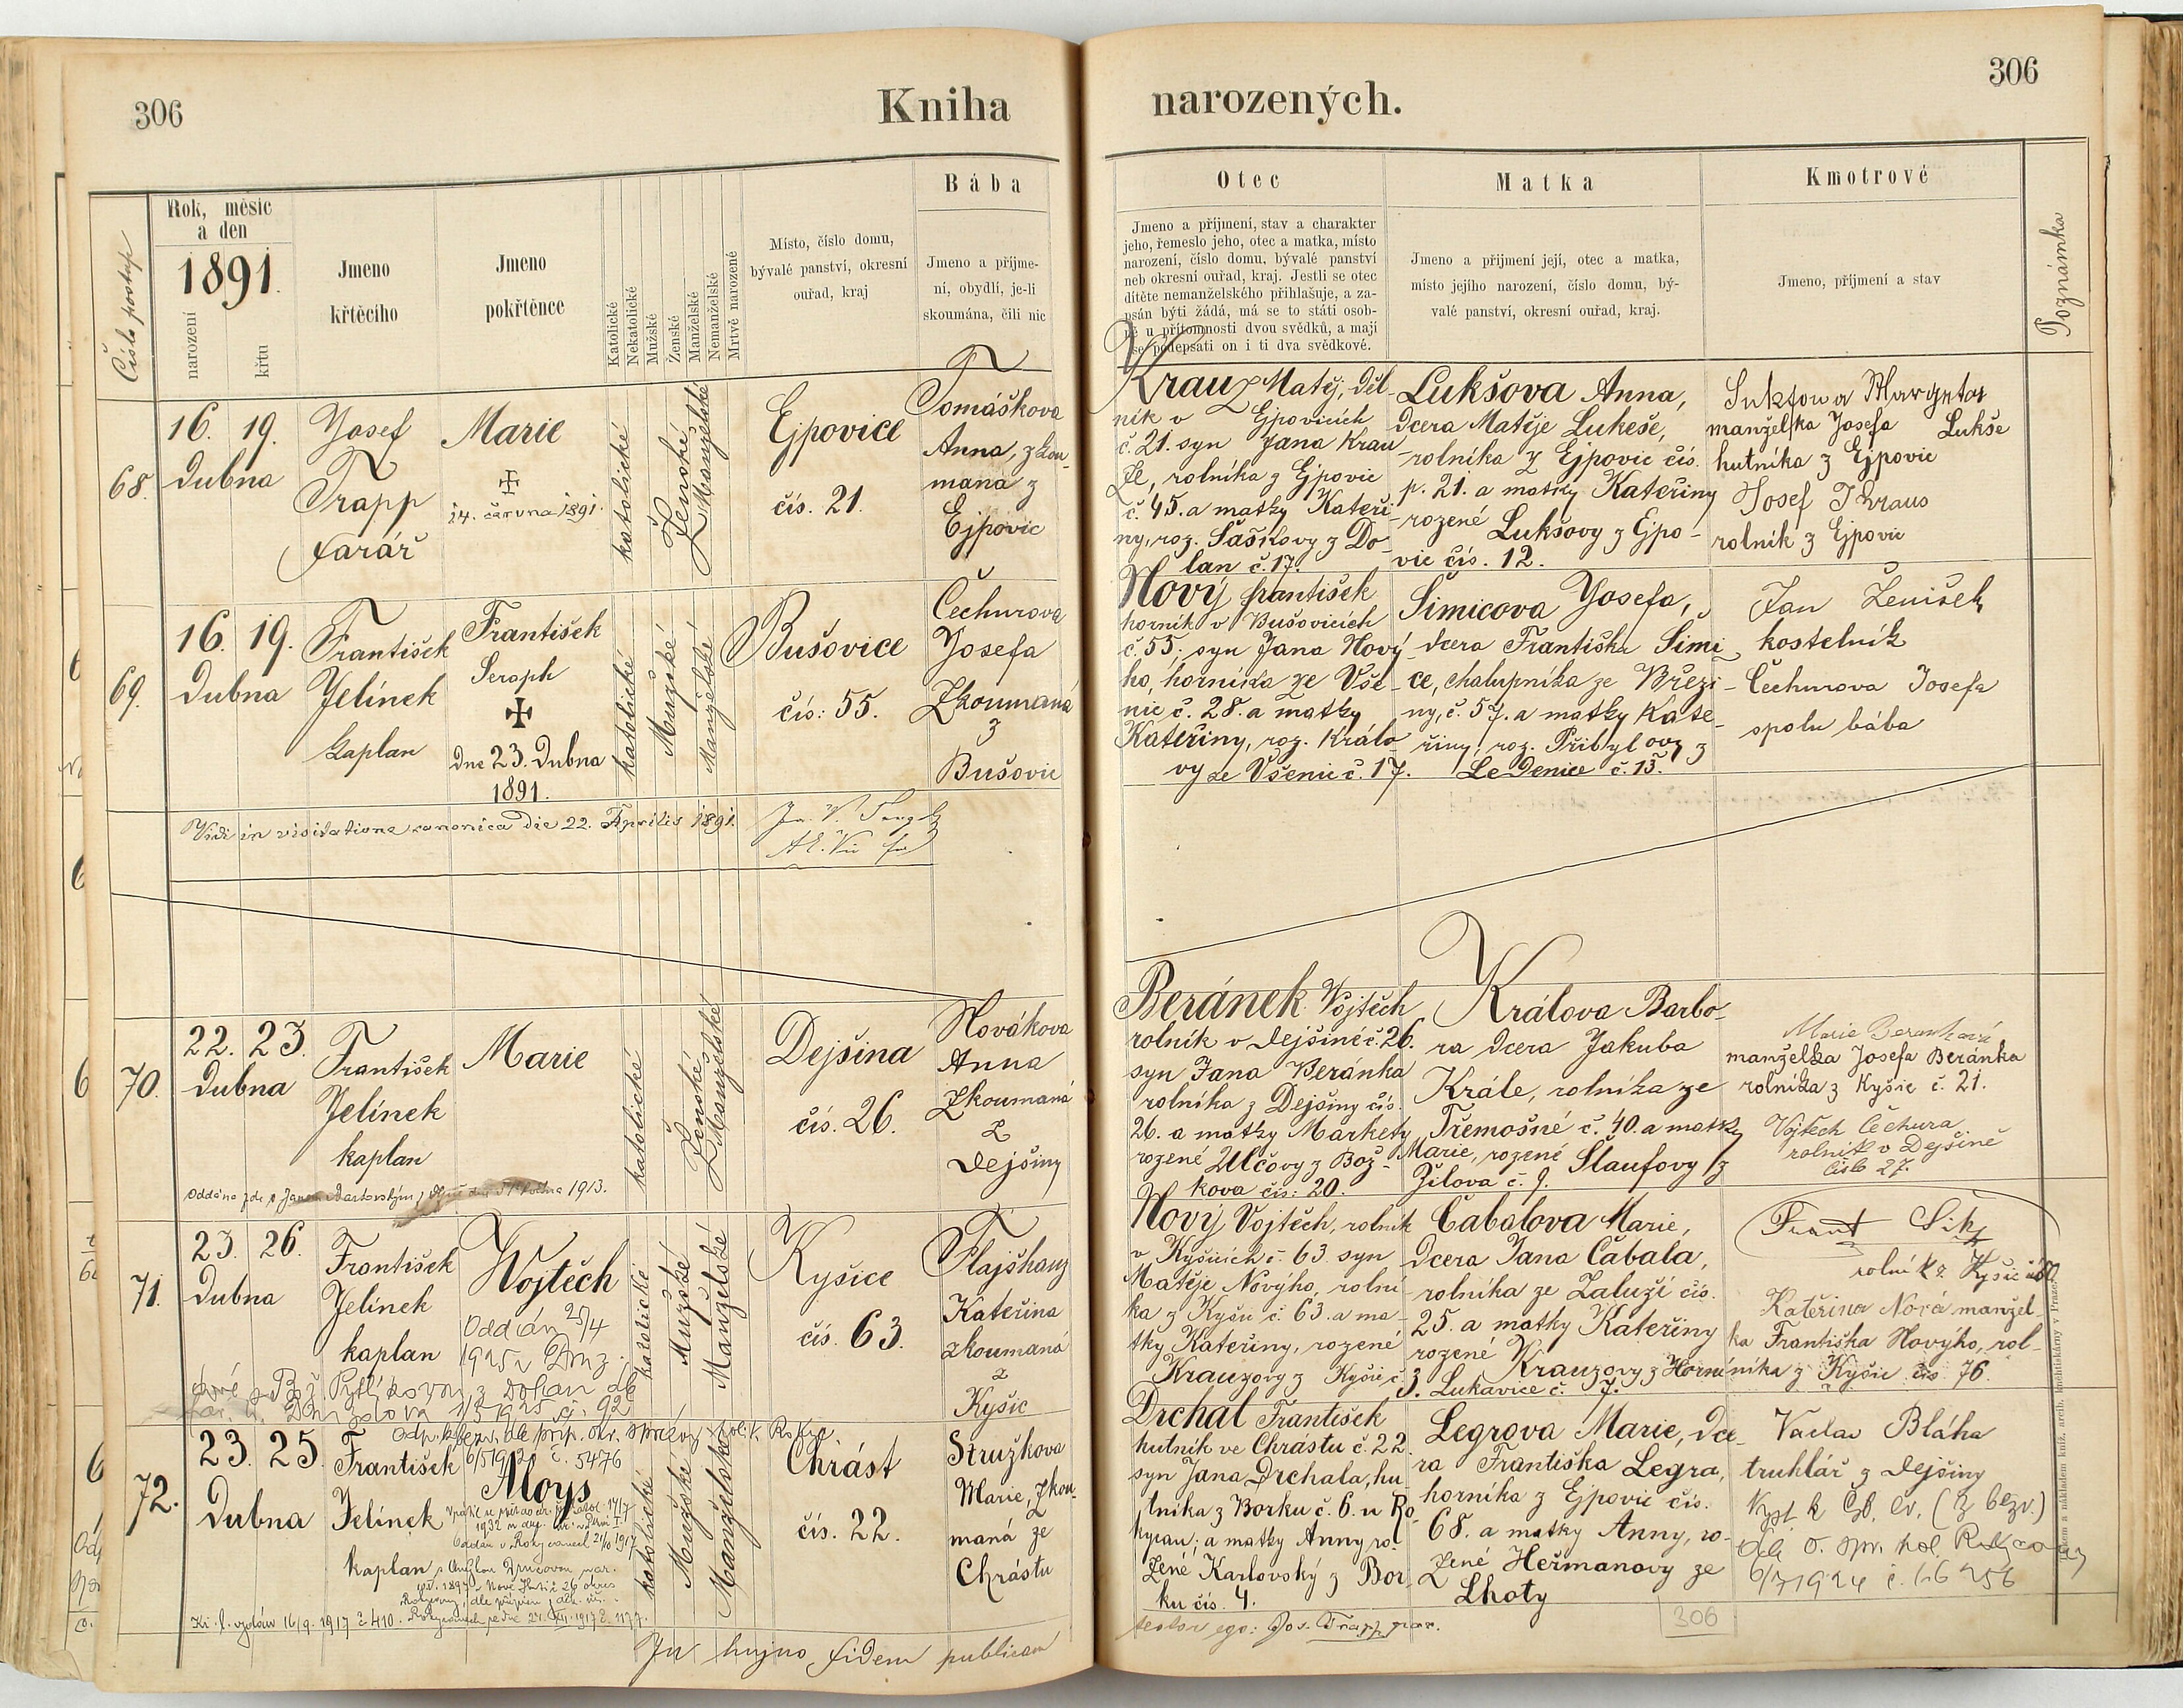 306
Kniha
narozených.
306
Číslo postup
Rok, měsíc
a den
1891.
narození
křtu
Jmeno
křtěcího
Jmeno
pokřtěnce
Katolické
Nekatolické
Mužské
Ženské
Manželské
Nemanželské
Mrtvě narozené
Místo, číslo domu,
bývalé panství, okresní
ouřad, kraj
Bába
Jmeno a příjme-
ní, obydlí, je-li
skoumána, čili nic
Otec
Jmeno a příjmení, stav a charakter
jeho, řemeslo jeho, otec a matka, místo
narození, číslo domu, bývalé panství
neb okresní ouřad, kraj. Jestli se otec
dítěte nemanželského přihlašuje, a za-
psán býti žádá, má se to státi osob-
ně u přítomnosti dvou svědků, a mají
se podepsati on i ti dva svědkové.
Matka
Jmeno a příjmení její, otec a matka,
místo jejího narození, číslo domu, bý-
valé panství, okresní ouřad, kraj.
Kmotrové
Jmeno, příjmení a stav
Poznámka
68.
16. 19.
Dubna
Josef
Trapp
farář
Marie
14. června 1891.
katolické
Ženské
Manželské
Ejpovice
čís. 21.
Tomáškova
Anna, zkou-
maná z
Ejpovic
Krauz Matěj, děl-
ník v Ejpovicích
č. 21. syn Jana Krau-
ze, rolníka z Ejpovic
č. 45. a matky Kateři-
ny, roz. Šaškovy z Do-
lan č. 17.
Lukšova Anna,
dcera Matěje Lukeše,
rolníka z Ejpovic čís.
p. 21. a matky Kateřiny
rozené Lukšovy z Ejpo-
vic čís. 12.
Margeta
manželka Josefa Lukše
hutníka z Ejpovic
Josef Kraus
rolník z Ejpovic
69.
16. 19.
Dubna
František
Jelínek
kaplan
František
Seraph
dne 23. Dubna
1891.
katolické
Mužské
Manželské
Bušovice
čís: 55.
Čechurova
Josefa
Zkoumaná
z
Bušovic
Nový František
horník v Bušovicích
č. 55. syn Jana Nový-
ho, horníka ze Vše-
nic č. 28. a matky
Kateřiny, roz. Králo-
vy ze Všenic č. 17.
Šimicova Josefa,
dcera Františka Šimi-
ce, chalupníka ze Březi-
ny, č. 57. a matky Kate-
řiny, roz. Přibylovy z
Ledenice č. 13.
Jan Ženíšek
kostelník
Čechurova Josefa
spolu bába
Vidi in visitatione canonica die 22. Aprilis 1891.
70.
22. 23.
Dubna
František
Jelínek
kaplan
Marie
katolické
Ženské
Manželské
Dejšina
čís. 26.
Nováková
Anna
Zkoumaná
z
Dejšiny
Beránek Vojtěch
rolník v Dejšině č. 26.
syn Jana Beránka
rolníka z Dejšiny čís.
26. a matky Markety
rozené Ulčovy z Bož-
kova čís: 20.
Králova Barbo-
ra dcera Jakuba
Krále, rolníka ze
Třemošné č. 40. a matky
Marie, rozené Šlaufovy z
Žilova č. 9.
manželka Josefa Beránka
rolníka z Kyšic č. 21.
Vojtěch Čechura
rolník v Dejšině
číslo 27.
71.
23. 26.
Dubna
František
Jelínek
kaplan
Vojtěch
Oddán 25/4
1925
katolické
Mužské
Manželské
Kyšice
čís. 63.
Flajšhanz
Kateřina
zkoumaná
z
Kyšic
Nový Vojtěch, rolník
v Kyšicích č. 63 syn
Matěje Nového, rolní-
ka z Kyšic č. 63. a ma-
tky Kateřiny, rozené
Krauzovy z Kyšic č. 3.
Čabalova Marie,
dcera Jana Čabala,
rolníka ze Zaluží čís.
25. a matky Kateřiny
rozené Krauzovy z Horní
Lukavice č. 7.
rolník z Kyšic
Kateřina Nová manžel-
ka Františka Nového, rol-
níka z Kyšic čís. 76.
72.
23. 25.
Dubna
František
Jelínek
kaplan
6/5 1921 č. 5476
Aloys
katolické
Mužské
Manželské
Chrást
čís. 22.
Stružkova
Marie, zkou-
maná ze
Chrástu
Drchal František
hutník ve Chrástu č. 22.
syn Jana Drchala, hu-
tníka z Borku č. 6. u Ro-
kycan; a matky Anny ro-
zené Karlovský z Bor-
ku čís. 4.
Legrova Marie, dce-
ra Františka Legra,
horníka z Ejpovic čís.
68. a matky Anny, ro-
zené Heřmanovy ze
Lhoty
Václav Bláha
truhlář z Dejšiny
In hujus fidem publicam
testor ego: Jos. Trapp par.
306